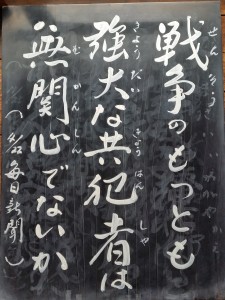 戦争のもっとも
強大な共犯者は
無関心でないか
せんそう
きょうだい
きょう はん しゃ
む かん しん
毎日新聞